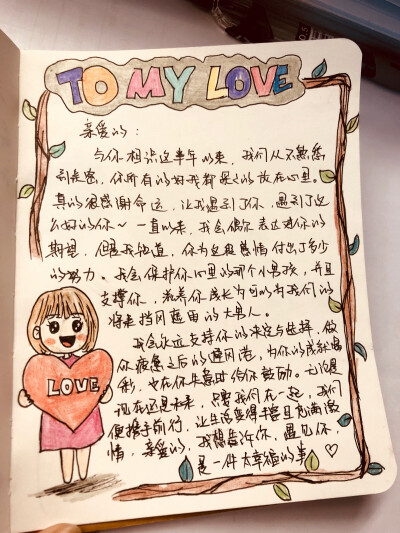 TO MY LOVE
亲爱的:
与你相识这半年以来,我们从不熟悉
到亲密,你所有的好我都是之的放在心里。
真的很感谢命运,让我遇到了你,遇到了这
么好的你~一直以来,我会偶尔表达对你的
期望,但我知道,你为这段感情付出了多少
的努力。我会保护你心里的那个小男孩,并且
支撑你,看着你成长为可以为我们的
将来挡风遮雨的大男人。
我会永远支持你的决定与选择,做
你疲惫之后的避风港,为你的成就喝
彩,也在你失落时给你鼓励。无论是
现在还是未来,只要我们在一起,我们
便携手前行,让生活变得丰富且充满激
情,亲爱的,我想告诉你,遇见你,
是一件太幸福的事
LOVE